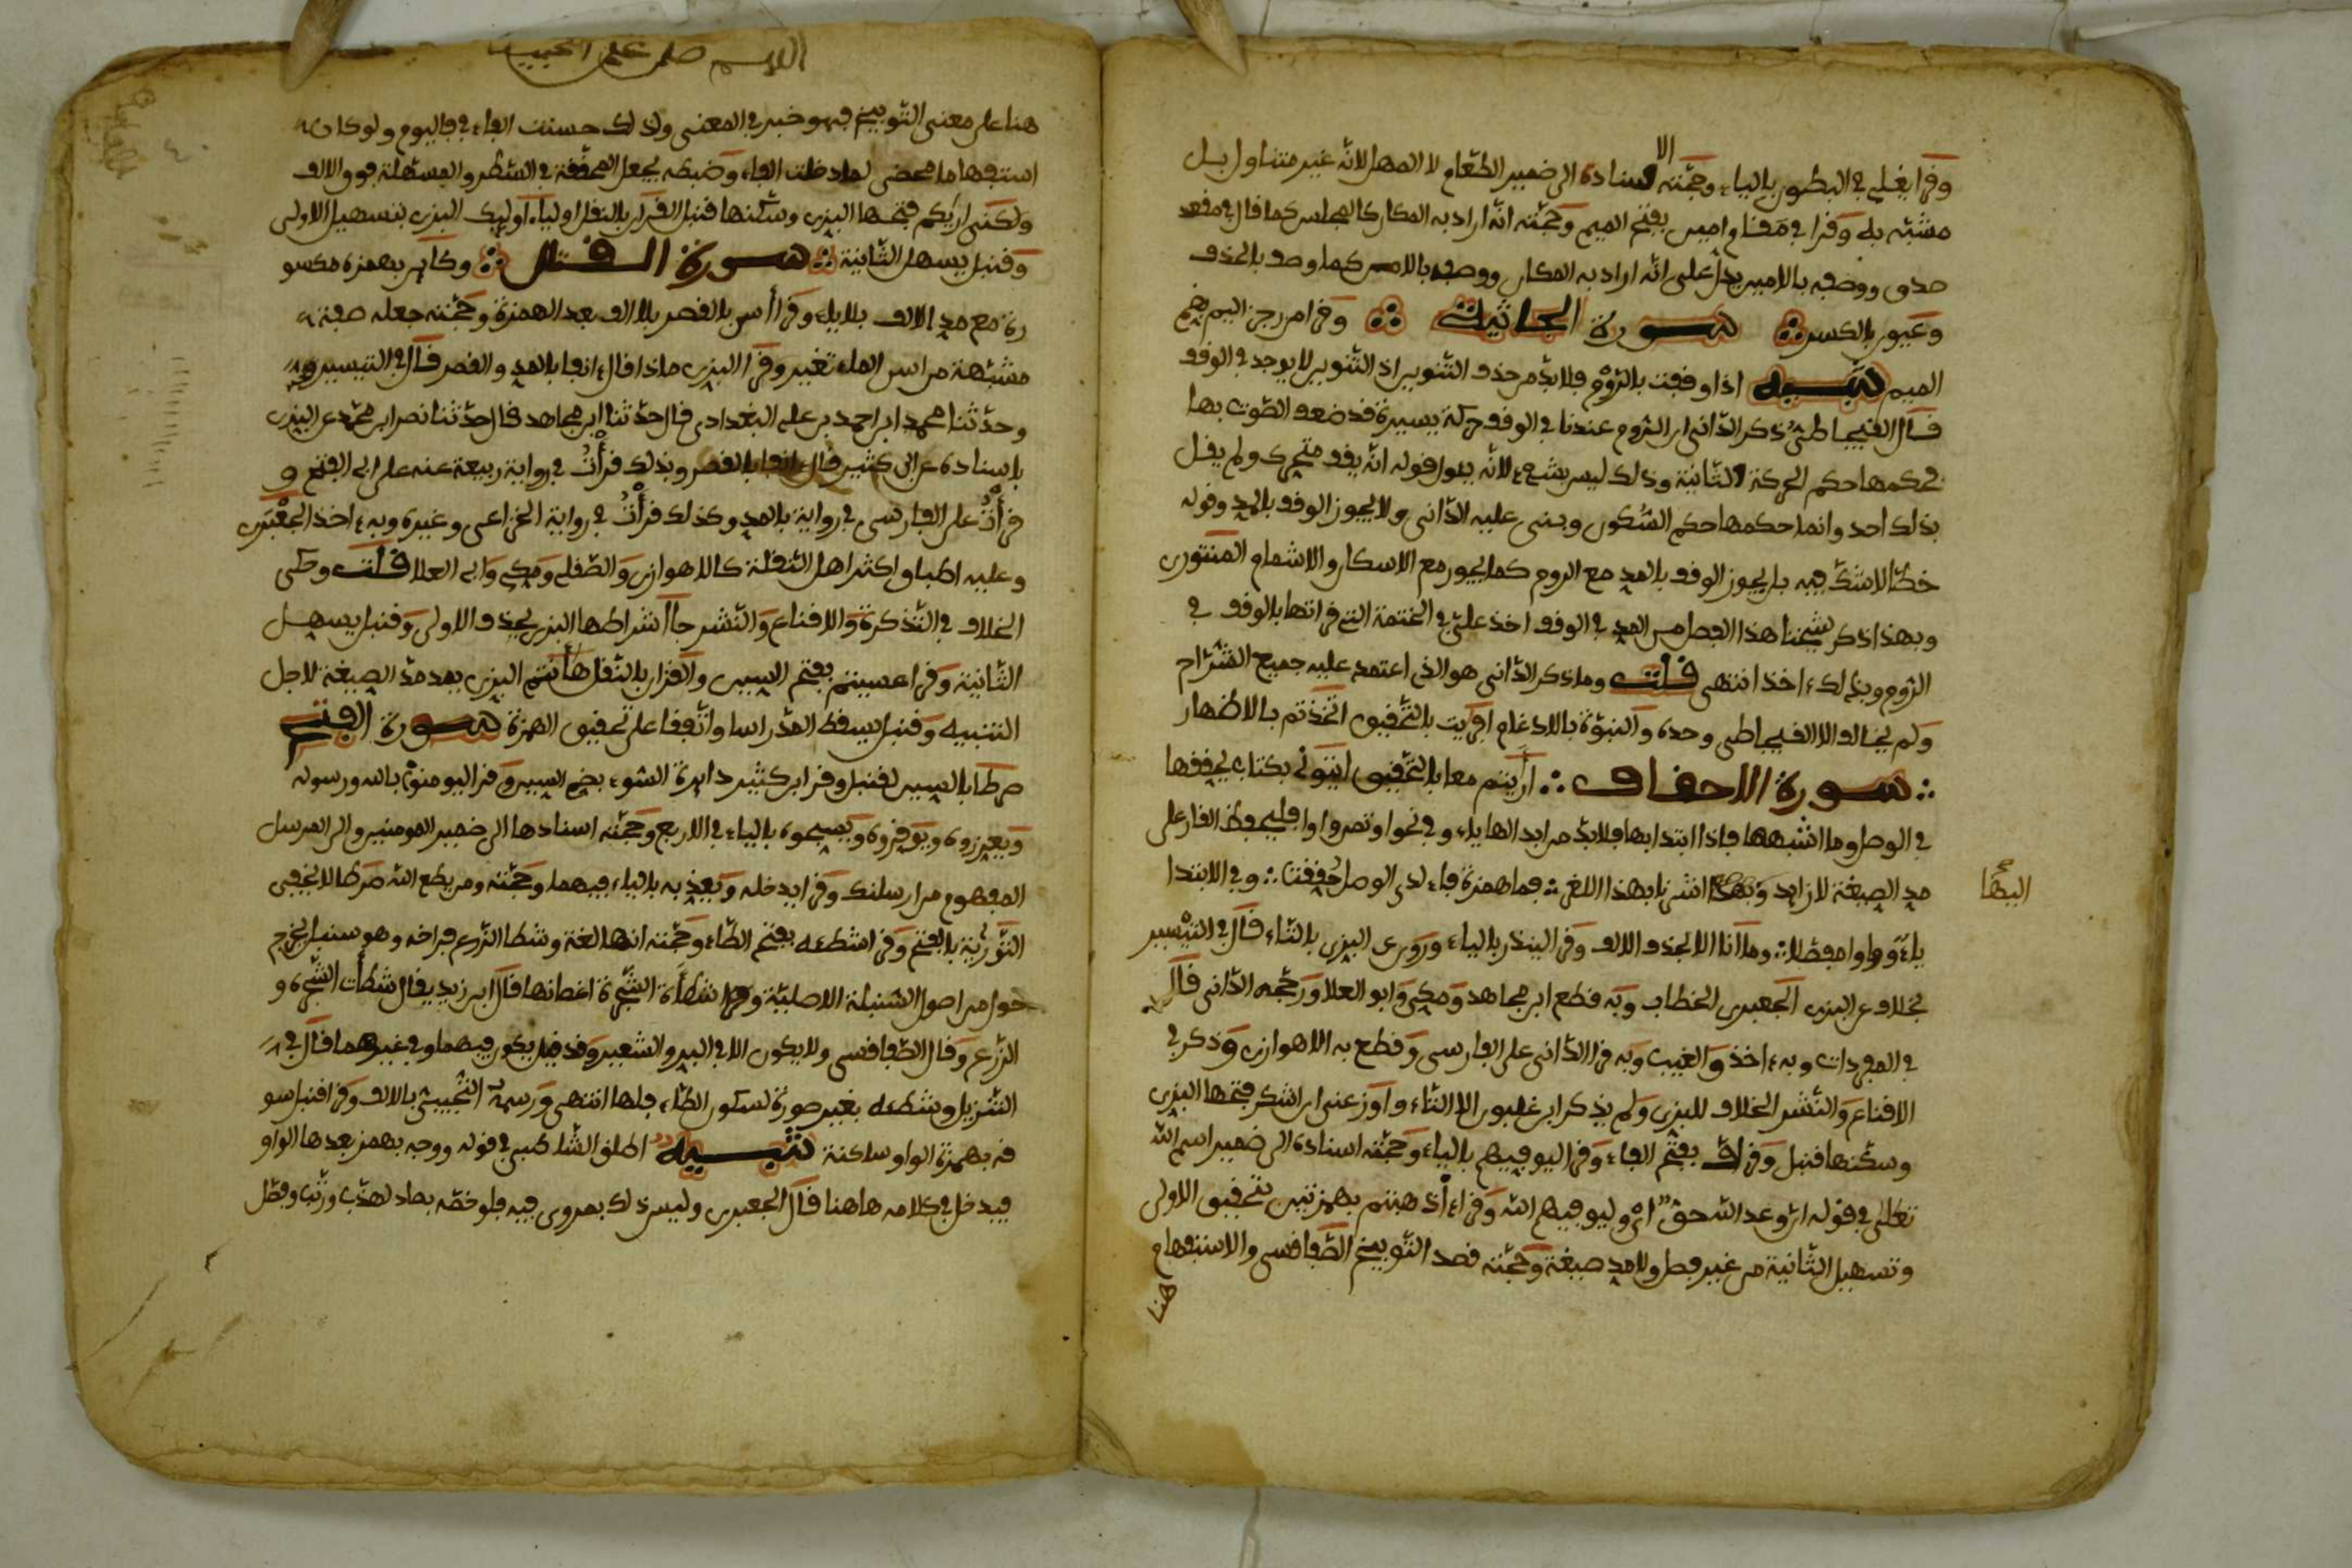 وقرا يغلي في البطون بالياء وحجته الاسناده الى ضمير الطعام لا المهل لانه غير متناول بل
مشبه به وقرا في مقام امين بفتح الميم وحجته انه اراد به المكان كالمجلس كما قال في مقعد
صدق ووصفه بالامين يدل على انه اراد به المكان ووصفه بالامن كما وصف بالخذف
وعيون بالكسر سورة الجاثية وقرا من رجز اليم بضم
الميم تنبيه اذا وقفت بالروم فلا بد من حذف التنوين اذ التنوين لا يوجد في الوقف
قال القيجاطي ذكر الداني ان الروم عندنا في الوقف حركة يسيرة قد ضعف الصوت بها
فحكمها حكم الحركة الثانية وذلك ليس بشيء لانه يئول قوله انه يقف متحرك ولم يقل
بذلك احد وانما حكمها حكم السكون وبنى عليه الداني ولا يجوز الوقف بالمد وقوله
خطا لا شك فيه بل يجوز الوقف بالمد مع الروم كما يجوز مع الاسكان والاشمام المنتوري
وبهذا ذكر شيخنا هذا الفصل من المد في الوقف اخذ علي في الختمة التي قراتها بالوقف في
الروم وبذلك ءاخذ انتهى قلت وما ذكر الداني هو الذي اعتمد عليه جميع الشراح
ولم يخالف الا القيجاطي وحده والنبوة بالادغام افرأيت بالتحقيق اتخذتم بالاظهار
سورة الاحقاف ارأيتم معا بالتحقيق ايتوني بكتاب يحققها
في الوصل وما اشبهها فاذا ابتدا بها فلا بد من ابدالها ياء وفي نحو اوتمن واوا فليحفظ القارئ على
مد الصيغة لا زايد وبهذا اشرنا بهذا اللغز فما همزة فاء لدى الوصل حققت وفي الابتدا
البها
ياء وواوا مفضلا وما انا الا بحذف الالف وقرا لينذر بالياء وروى البزي بالتاء قال في التيسير
بخلاف عن البزي الجعبري الخطاب وبه قطع ابن مجاهد ومكي وابو العلا ورجحه الداني قال
في المفردات وبه ءاخذ والغيب وبه قرا الداني على الفارسي وقطع به الاهوازي وذكر في
الاقناع والنشر الخلاف للبزي ولم يذكر ابن غلبون الا التاء واوزعني ان اشكر فتحها البزي
وسكنها قنبل وقرا اف بفتح الفاء وقرا ليوفيهم بالياء وحجته اسناده الى ضمير اسم الله
تعالى في قوله ان وعد الله حق اي وليوفيهم الله وقرا ءاذهبتم بهمزتين بتحقيق الاولى
وتسهيل الثانية من غير فصل ولا مد صيغة وحجته قصد التوبيخ الصفاقسي والاستفهام
هنا
اللهم صل على الحبيب
هنا على معنى التوبيخ فهو خبر في المعنى ولذلك حسنت الفاء في فاليوم ولو كان
استفهاما محضا لما دخلت الفاء وضبطه بجعل المحققة في السطر والمسهلة فوق الالف
ولكني اريكم فتحها البزي وسكنها قنبل القران بالنقل اولياء اوليك البزي بتسهيل الاولى
وقنبل يسهل الثانية سورة القتال وكاين بهمزة مكسو
رة مع مد الالف بلا ياء وقرا اسن بالقصر بلا الف بعد الهمزة وحجته جعله صفة
مشبهة من اسن الماء تغير وقرا البزي ماذا قال انفا بالمد والقصر قال في التيسير
وحدثنا محمد ابن احمد بن علي البغدادي قال حدثنا ابن مجاهد قال حدثنا نصر ابن محمد عن البزي
باسناده عن ابن كثير قال انفا بالقصر وبذلك قرات في رواية ربيعة عنه على ابي الفتح و
قرات على الفارسي في رواية بالمد وكذلك قرات في رواية الخزاعي وغيره وبه ءاخذ الجعبري
وعليه اطباق اكثر اهل النقلة كالاهوازي والصقلي ومكي وابي العلا قلت وحكى
الخلاف في التذكرة والاقناع والنشر جاا شراطها البزي بحذف الاولى وقنبل يسهل
الثانية وقرا عسيتم بفتح السين والقران بالنقل هاأنتم البزي يمد مد الصيغة لاجل
التنبيه وقنبل يسقط المد راسا واتفقا على تحقيق الهمزة سورة الفتح
صرطا بالسين لقنبل وقرا ابن كثير دايرة السوء بضم السين وقرا ليومنوا بالله ورسوله
ويعزروه ويوقروه ويسبحوه بالياء في الاربع وحجته اسنادها الى ضمير المومنين والى المرسل
المفهوم من ارسلنك وقرا يدخله ويعذبه بالياء فيهما وحجته ومن يطع الله صرطا لا يخفى
التورية بالفتح وقرا شطئه بفتح الطاء وحجته انها لغة وشطا الزرع فراخه وهو سنبل يخرج
حول من اصول السنبلة الاصلية وشطأة الشجرة اغصانها قال ابن زيد يقال شطأت الشجرة و
الزرع وقال الصفاقسي ولا يكون الا في البر والشعير وقد قيل يكون فيهما وفي غيرهما قال في
التنزيل وشطئه بغير صورة لسكون الطاء قبلها انتهى ورسمه التجيبي بالالف وقرا قنبل سو
قه بهمزة الواو ساكنة تنبيه اطلق الشاطبي في قوله ووجه بهمز بعدها الواو
فيدخل في كلامه هاهنا قال الجعبري وليس ذلك بمروي فيه فلو خصه بصاد لهذب ورتب وفصل